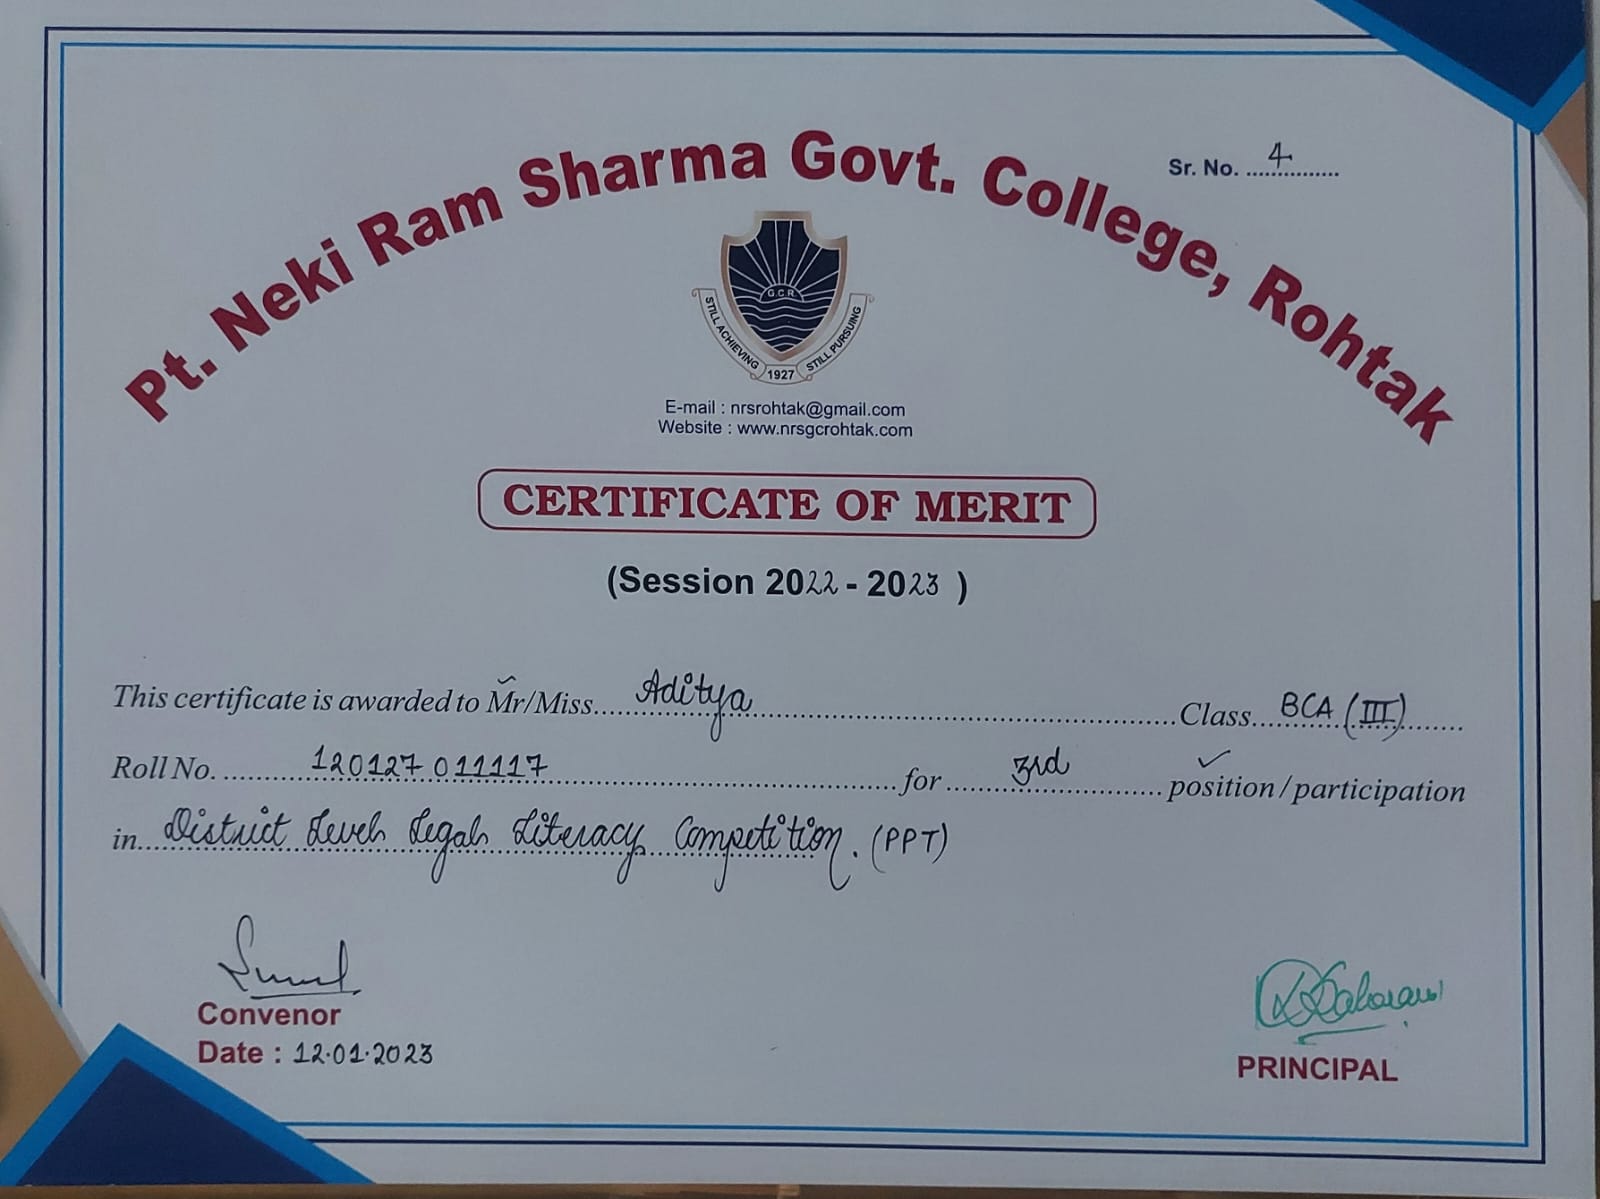 Sr. No. 4
Pt. Neki Ram Sharma Govt. College, Rohtak
G.C.R.
STILL ACHIEVING 1927 STILL PURSUING
E-mail : nrsrohtak@gmail.com
Website : www.nrsgcrohtak.com
CERTIFICATE OF MERIT
(Session 2022 - 2023 )
This certificate is awarded to Mr/Miss....Aditya....Class...BCA (III)
Roll No. 120127011117 for 3rd position/participation
in...District Level Legal Literacy Competition. (PPT)
Convenor
Date : 12.01.2023
PRINCIPAL